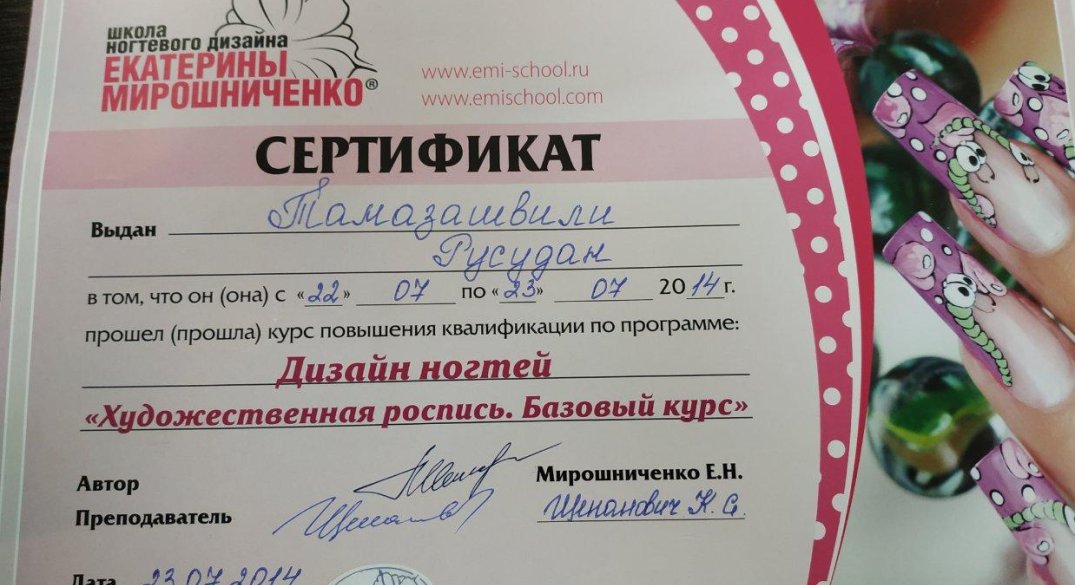 школа
ногтевого дизайна
ЕКАТЕРИНЫ
МИРОШНИЧЕНКО®
www.emi-school.ru
www.emischool.com
СЕРТИФИКАТ
Выдан Тамазашвили
Русудан
в том, что он (она) с «22» 07 по «23» 07 2014 г.
прошел (прошла) курс повышения квалификации по программе:
Дизайн ногтей
«Художественная роспись. Базовый курс»
Автор Мирошниченко Е.Н.
Преподаватель Щепанович К. С.
Дата 23.07.2014